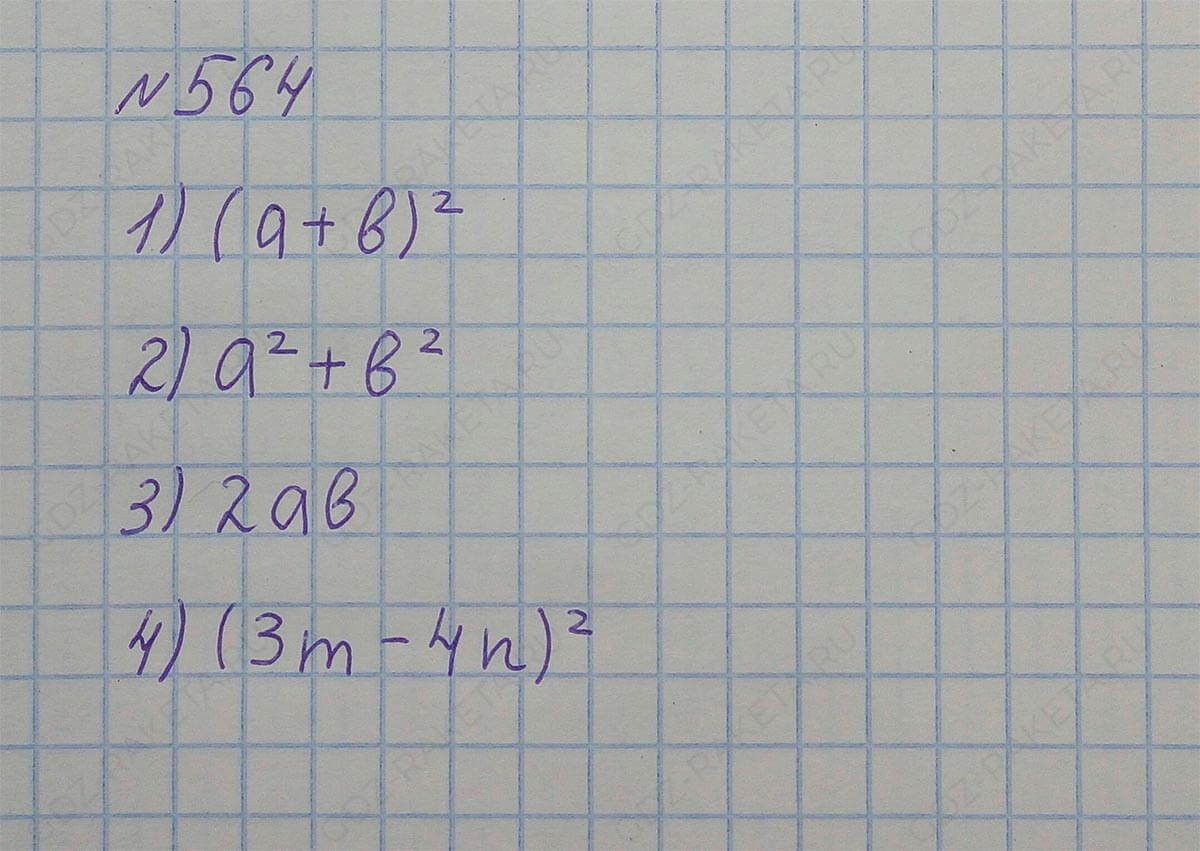 № 564
1) (a + b)²
2) a² + b²
3) 2ab
4) (3m - 4n)²
GDZ-RAKETA.RU